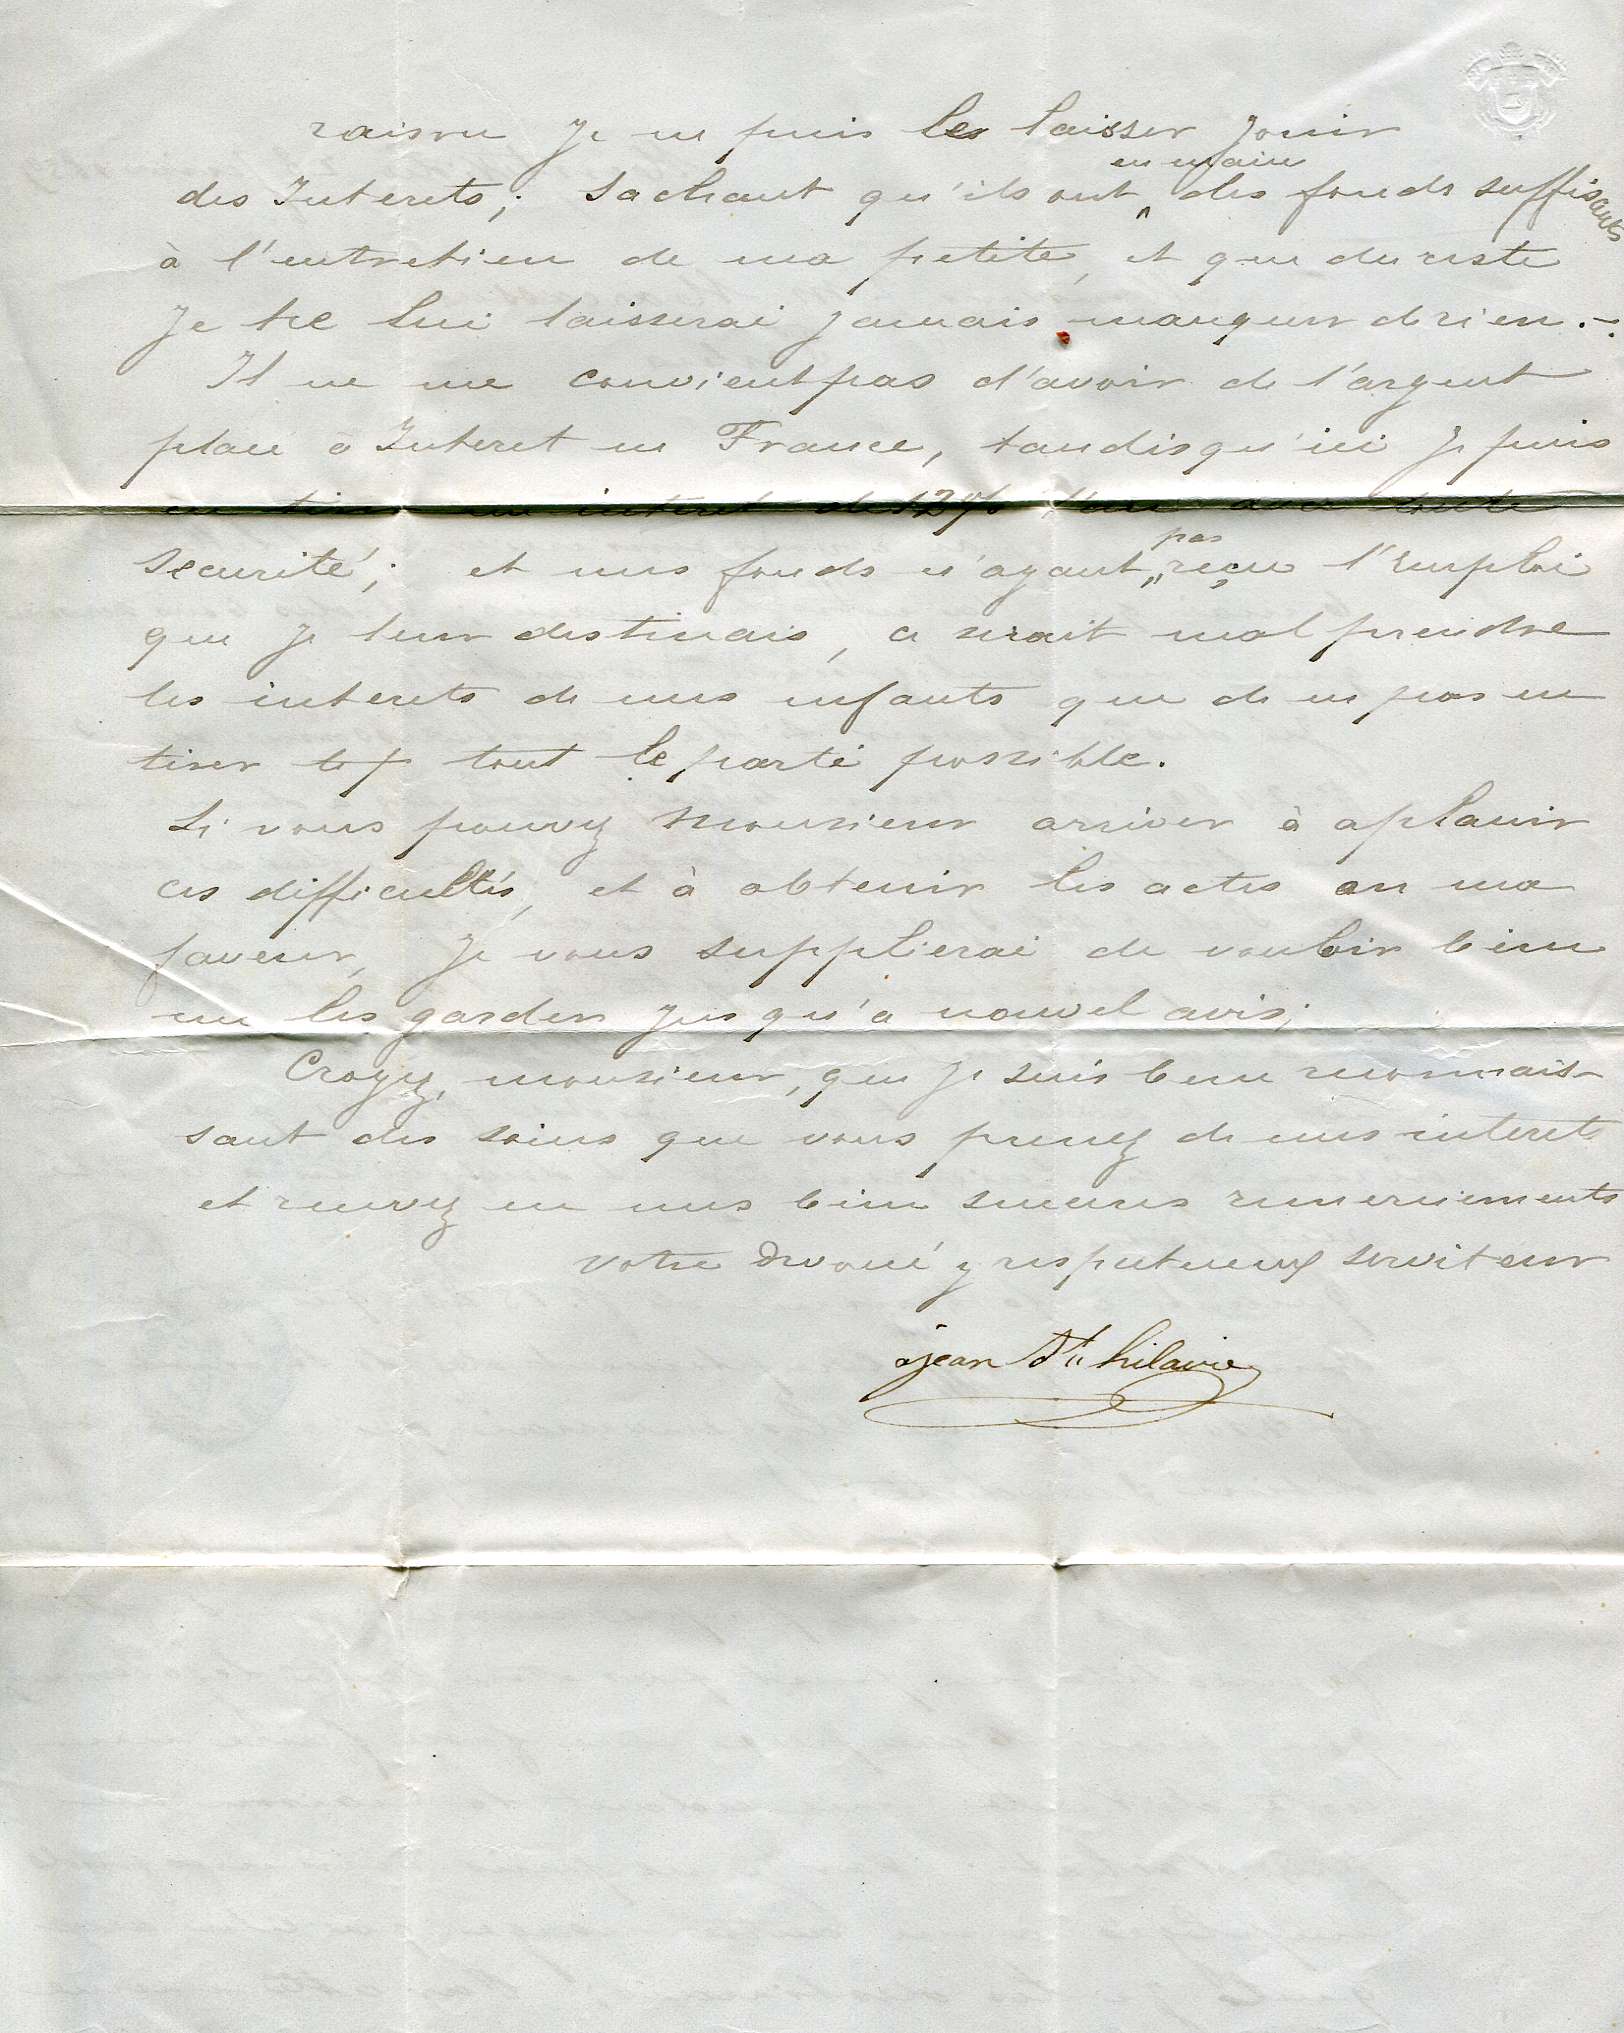 raison Je ne puis les laisser Jouir
des Interets; Sachant qu'ils ont en main des fonds suffisants
à l'entretien de ma petite, et que du reste
Je ne lui laisserai Jamais manquer de rien.-
Il ne me convient pas d'avoir de l'argent
place à Interet en France, tandis qu'ici Je puis
en tirer un interet de 12% l'an avec toute
securité; et mes fonds n'ayant pas reçu l'Emploi
que Je leur destinais, ce serait mal prendre
les interets de mes enfants que de ne pas en
tirer tout le parti possible.
Si vous pouvez Monsieur arriver à aplanir
ces difficultés, et à obtenir les actes en ma
faveur, Je vous supplierai de vouloir bien
me les garder Jusqu'a nouvel avis;
Croyez, monsieur, que Je suis bien reconnais-
sant des soins que vous prenez de mes interets
et recevez en mes bien sinceres remerciements
Votre Devoué y respectueux serviteur
jean St hilaire